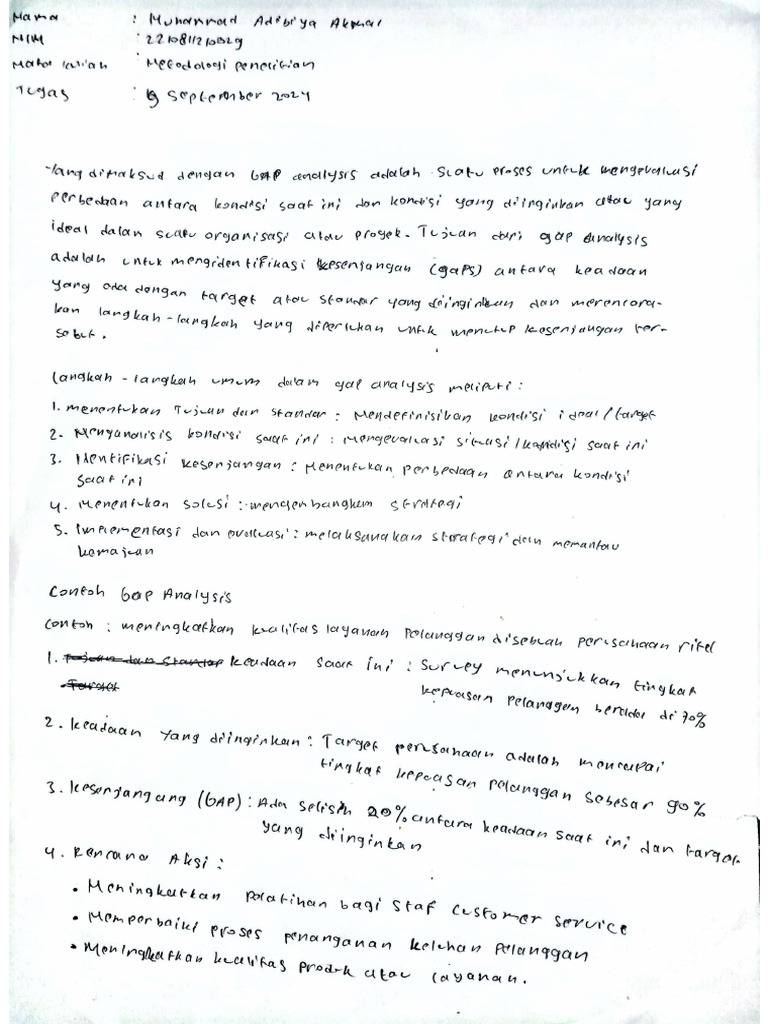 Nama : Muhammad Adibiya Akmal
NIM : 2210811210029
Mata kuliah : Metodologi penelitian
Tugas : 9 September 2024
Yang dimaksud dengan GAP analysis adalah suatu proses untuk mengevaluasi
perbedaan antara kondisi saat ini dan kondisi yang diinginkan atau yang
ideal dalan suatu organisasi atau proyek. Tujuan dari gap analysis
adalah untuk mengidentifikasi kesenjangan (gaps) antara keadaan
yang ada dengan target atau standar yang diinginkan dan merencana-
kan langkah-langkah yang diperlukan untuk menutup kesenjangan ter-
sebut.
Langkah-langkah umum dalam gap analysis meliputi :
1. menentukan Tujuan dan standar : Mendefinisikan kondisi ideal/target
2. Menganalisis kondisi saat ini : Mengevaluasi situasi/kondisi saat ini
3. Identifikasi kesenjangan : Menentukan perbedaan antara kondisi
saat ini
4. Menentukan solusi : mengembangkan strategi
5. Implementasi dan evaluasi : melaksanakan strategi dan memantau
kemajuan
Contoh Gap Analysis
Contoh : meningkatkan kualitas layanan pelanggan disebuah perusahaan ritel
1. Tujuan dan standar keadaan saat ini : Survey menunjukkan tingkat
Target kepuasan pelanggan berada di 70%
2. Keadaan yang diinginkan : Target perusahaan adalah mencapai
tingkat kepuasan pelanggan sebesar 90%
3. Kesenjangang (GAP) : Ada selisih 20% antara keadaan saat ini dan target
yang diinginkan
4. Rencana Aksi :
• Meningkatkan pelatihan bagi staf customer service
• Memperbaiki proses penanganan keluhan pelanggan
• Meningkatkan kualitas produk atau layanan.